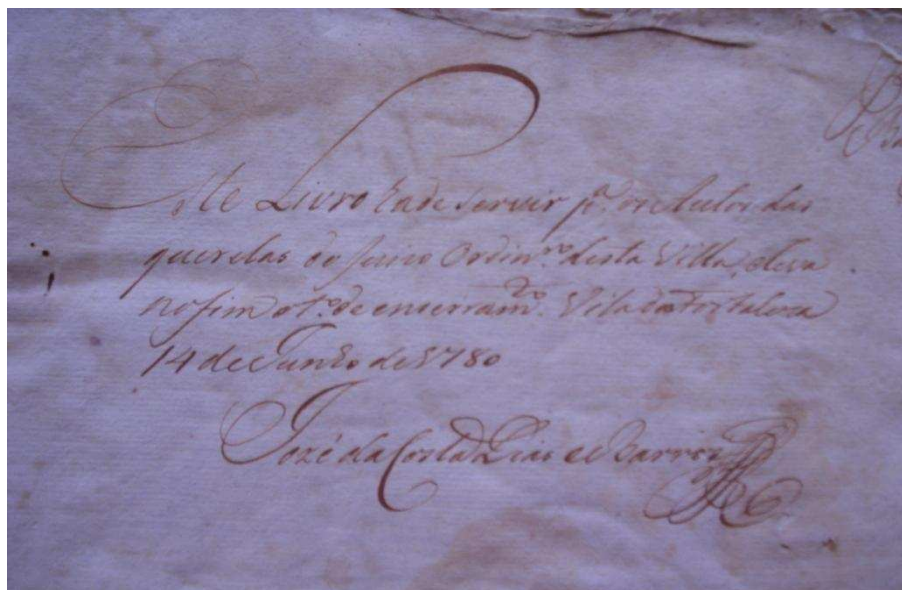 Este Livro hade servir pª. os Autos das
querelas do Juizo Ordinrº. desta Villa, eleva
no fim o tº. de encerramtº. Vila da Fortaleza
14 de Junho de 1780
Jozé da Costa Dias e Barros